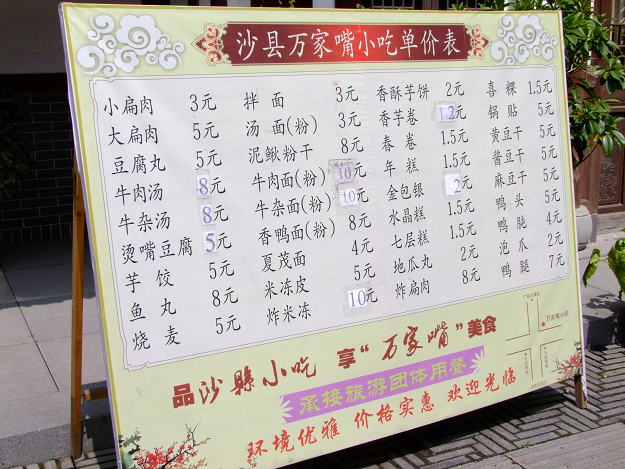 沙县万家嘴小吃单价表
小扁肉 3元
大扁肉 5元
豆腐丸 5元
牛肉汤 8元
牛杂汤 8元
烫嘴豆腐 5元
芋饺 5元
鱼丸 8元
烧麦 5元
拌面 3元
汤面(粉) 3元
泥鳅粉干 8元
牛肉面(粉) 10元
牛杂面(粉) 10元
香鸭面(粉) 8元
夏茂面 4元
米冻皮 5元
炸米冻 10元
香酥芋饼 2元
香芋卷 12元
春卷 1.5元
年糕 1.5元
金包银 2元
水晶糕 1.5元
七层糕 1.5元
地瓜丸 2元
炸扁肉 8元
喜粿 1.5元
锅贴 5元
黄豆干 5元
酱豆干 5元
麻豆干 5元
鸭头 5元
鸭肫 4元
泡爪 2元
鸭腿 7元
品沙縣小吃 享“万家嘴”美食
承接旅游团体用餐
环境优雅 价格实惠 欢迎光临
万家嘴小吃